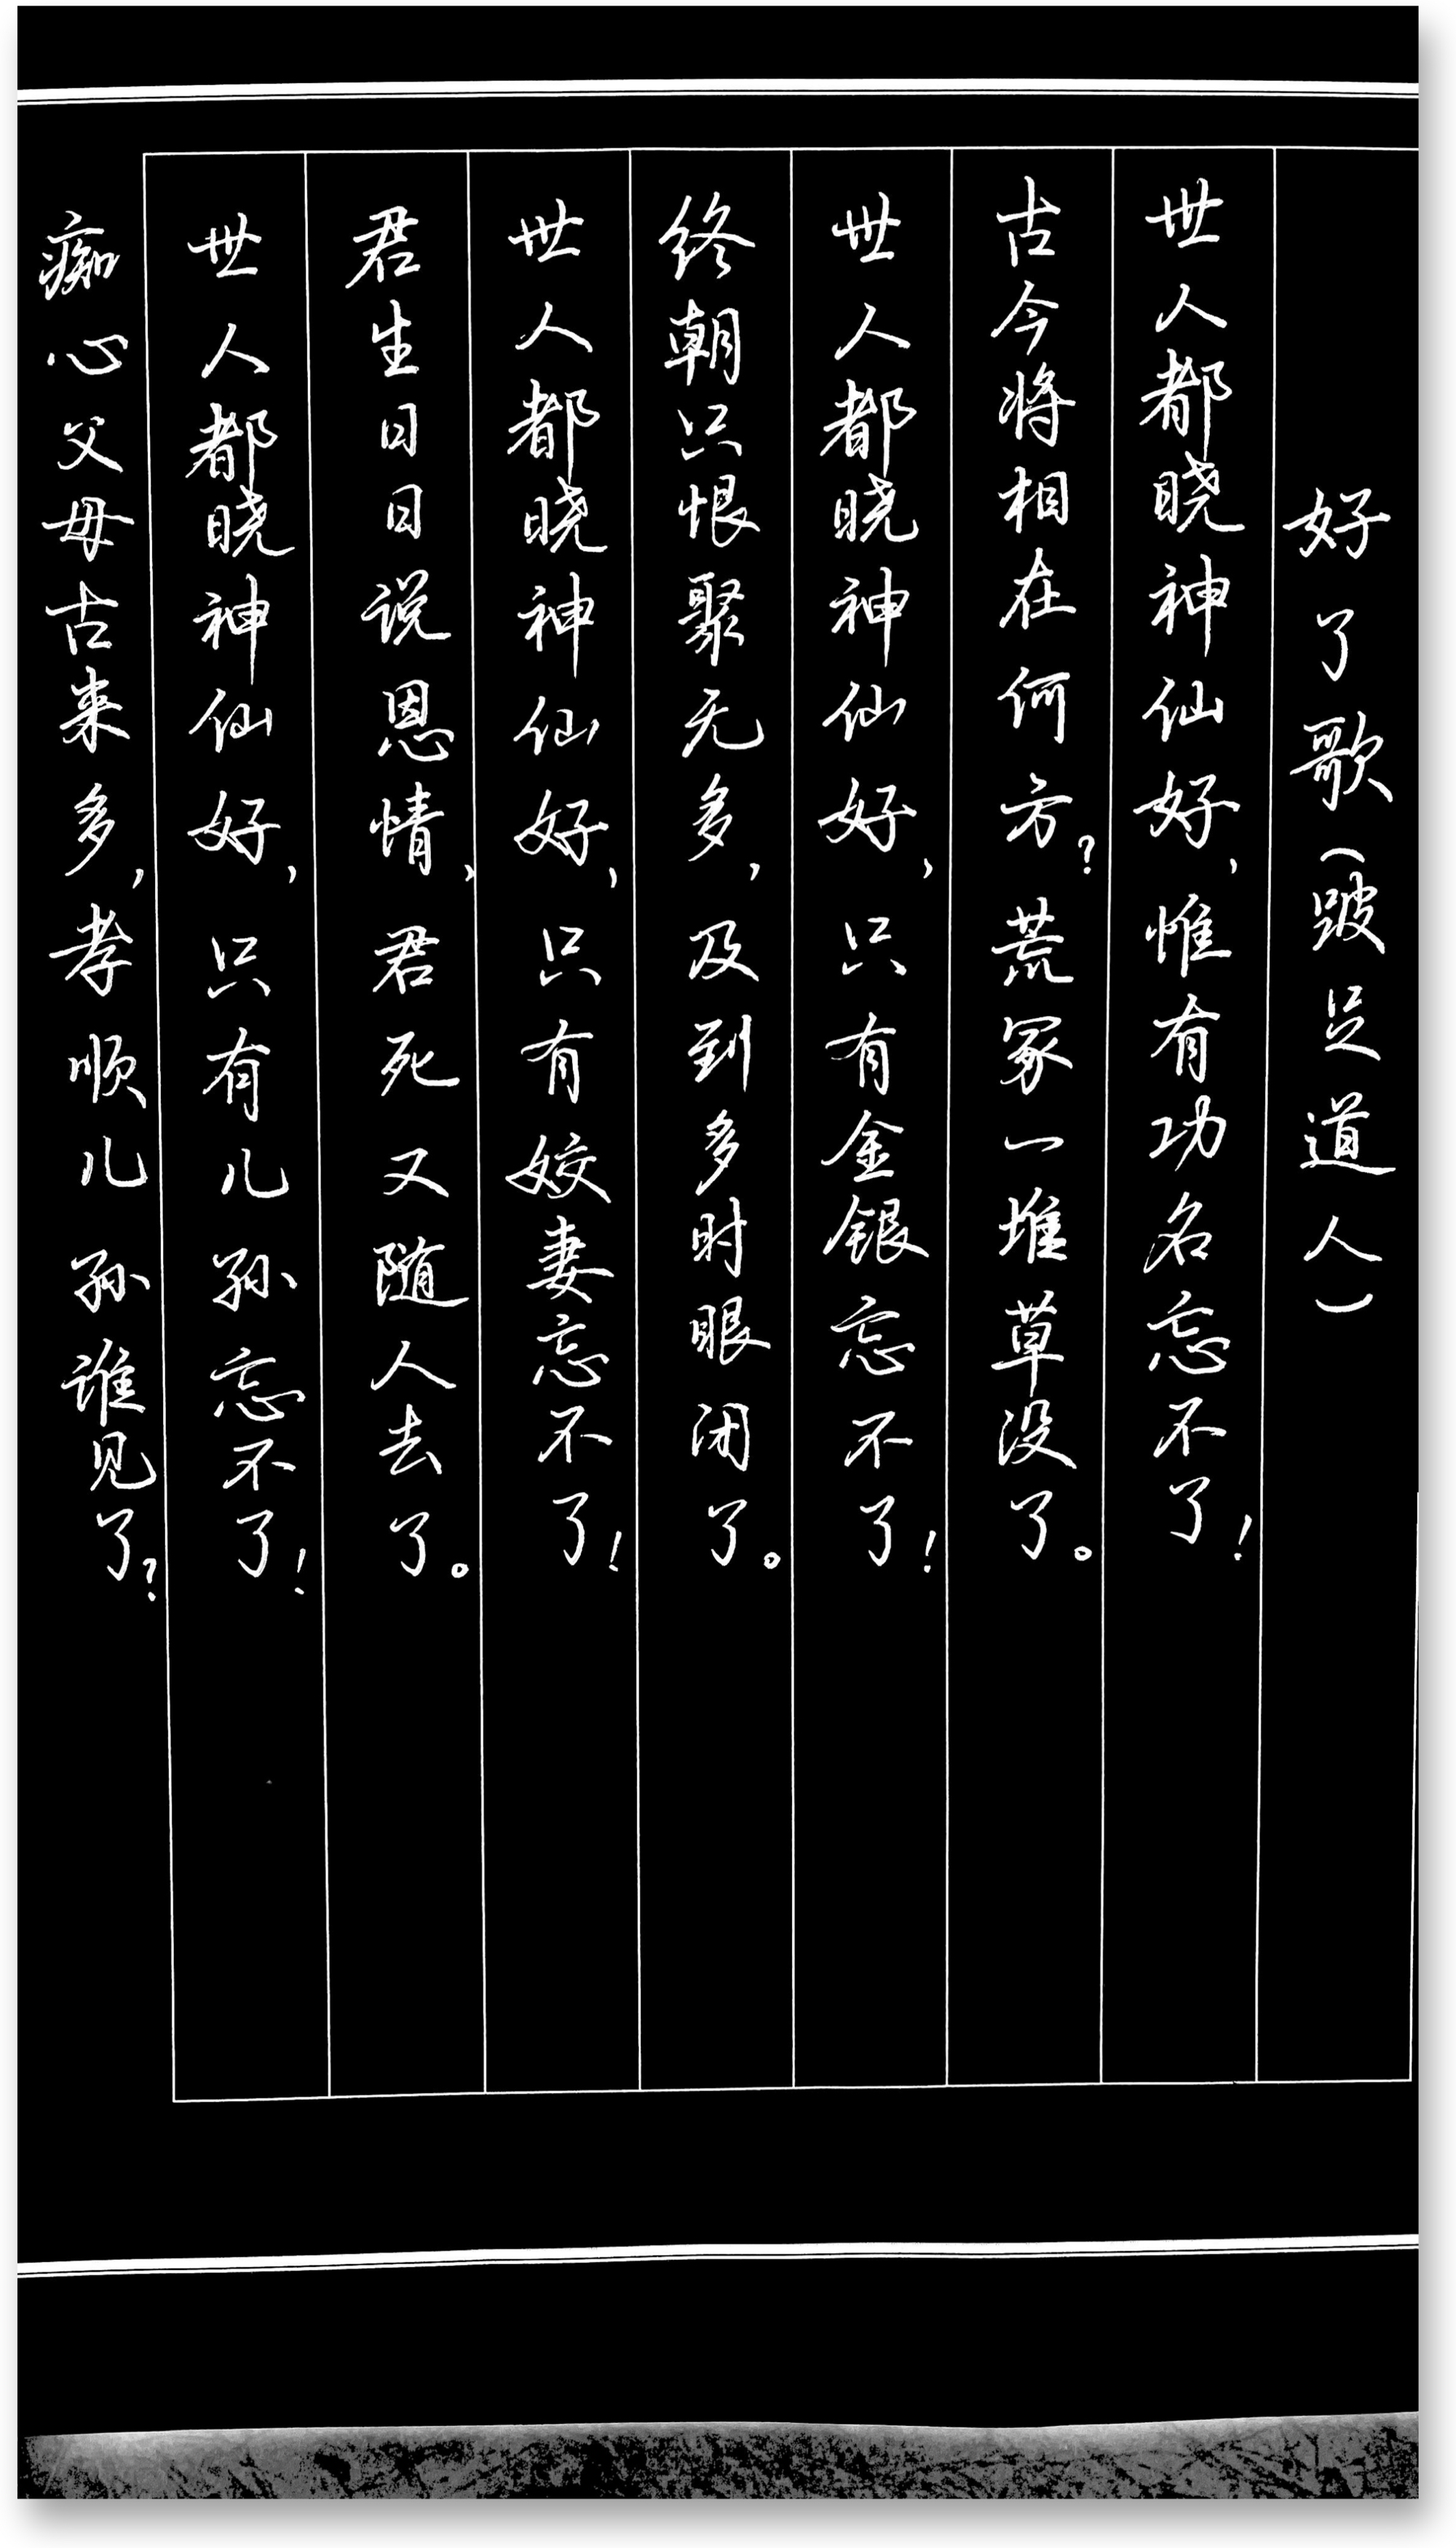 好了歌(跛足道人)
世人都晓神仙好,惟有功名忘不了!
古今将相在何方?荒冢一堆草没了。
世人都晓神仙好,只有金银忘不了!
终朝只恨聚无多,及到多时眼闭了。
世人都晓神仙好,只有姣妻忘不了!
君生日日说恩情,君死又随人去了。
世人都晓神仙好,只有儿孙忘不了!
痴心父母古来多,孝顺儿孙谁见了?